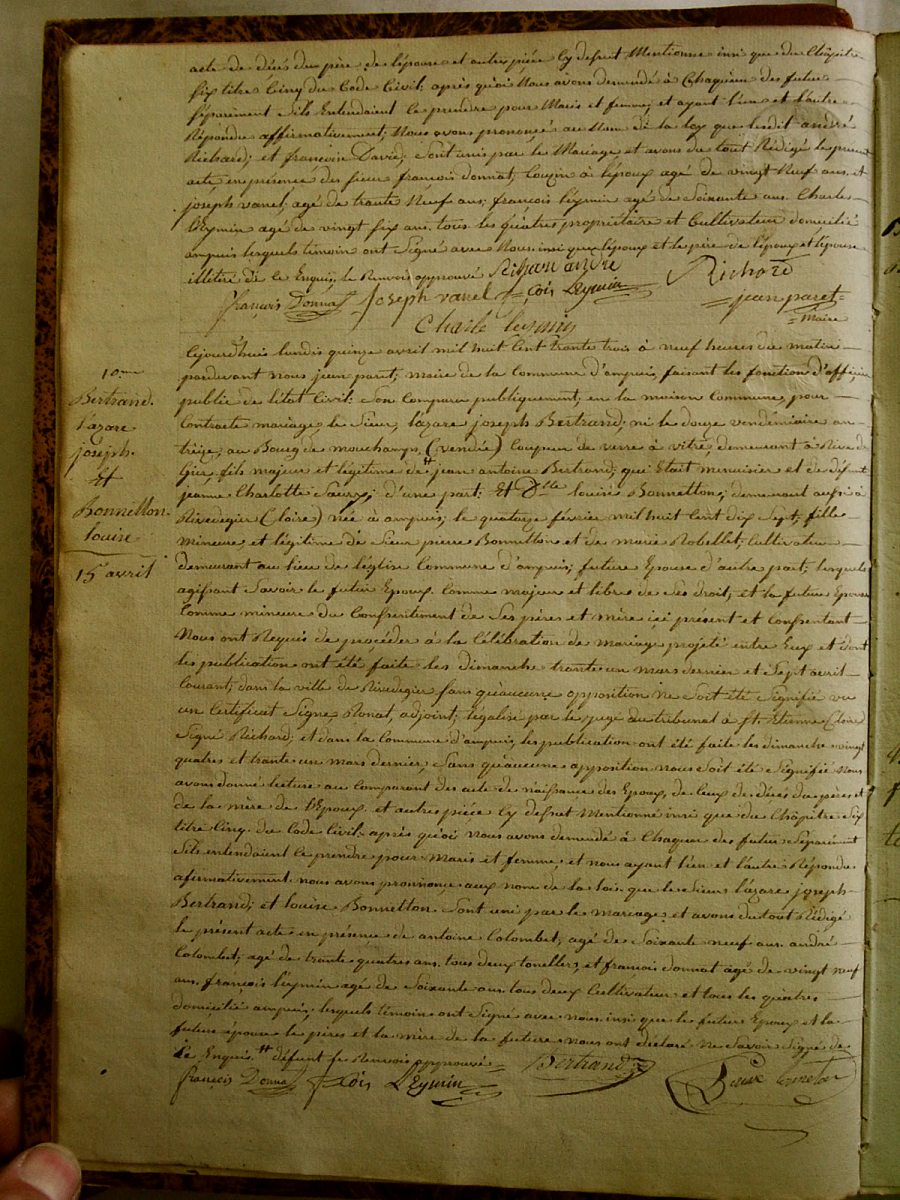 acte de décés du père de lépouse et autres piéce Cy defsut Mentionne insi que du Chapitre
six titre Cinq du Code Civil; après quoi Nous avons demendé à Chaquun des futur
séparément sils Entendaient ce prendre pour Maris et femme, et ayant l'un et l'autre
Répondu affirmativement, Nous avons prononcé au Nom de la loy que lesdit andré
Richard; et françoise David; sont unis par le Mariage et avons du tout Rédigé le present
acte en présence des sieur françois donnat, Cousin à lépoux agé de vingt Neuf ans, et
joseph vanel, agé de trante Neuf ans; françois léymin agé de Soixante ans. Charles
léymin agé de vingt six ans. tous les quatres propriétaire et Cultivateur domicilié
ampuis lesquels témoin ont Signé avec Nous insi que lépoux et le père de lépoux et lépouse
illétéré de ce Enquis, le Renvois approuvé Richard andré Richard
françois Donnat Joseph vanel fçois Leymin jean paret
Maire
Charle leymin
Cejourd'hui lundis quinze avril mil huit Cent trante trois à neuf heures du matin
10me
pardevant nous jean paret, maire de la commune d'ampuis, faisant les fonction d'officier
Bertrand
public de létat Civil: Son Comparu publiquement, en la maison Commune, pour
Lazare
Contracté mariage, le Sieur, lazare joseph Bertrand; né le douze vendémiaire an
joseph.
treize; au Bourg de mouchamps, (vendée) Coupeur de verre à vitre, demeurant à Rive de
Et
gier, fils majeur et légitime de # jean antoine Bertrand, qui Etait menuisier et de défunte
jeanne Charlotte; d'une part: Et Dlle louise Bonnetton; demeurant aussi à
Bonnetton
Rivedegier (loire) née à ampuis, le quatorze février mil huit Cent dix Sept, fille
louise
mineure, et légitime de Sieur pierre Bonnetton et de marie Robellet, Cultivateur
15 avril
demeurant au lieu de l'église Commune d'ampuis; future Epouse d'autre part; lesquels
agissant Savoir le futur Epoux Comme majeur et libres de Ses droit, et la future Epouse
Comme mineure du Consentiment de Ses pères et mère ici présent et Consentant
Nous ont Requis de procéder à la Célébration de mariage projeté entre Eux et dont
les publication ont été faite les dimanche trante un mars dernier et Sept avril
Courant; dans la ville de Rivedegier sans quaucune opposition Ne Soit été Signifié vu
un Certificat Signé Ronat, adjoint; légalisé par le jugé du tribunal à St. Etienne (loire
Signé Richard; et dans la Commune d'ampuis, les publication ont été faite les dimanche vingt
quatres et trante un mars dernier, Sans quaucune opposition nous Soit été Signifié Nous
avons donné lecture au Comparant des acte de naissance des Epoux, de Ceux de décés du pères et
de la mère de l'Epoux et autres piéce Cy defsut Mentionné insi que du Chapitre Six
titre Cinq du Code Civil; après quoi nous avons demendé à Chaqun des futur Séparément
Sils entendaient ce prendre pour Maris et femme, et nous ayant l'un et l'autre Répondu
afirmativement. nous avons pronnoncé aux nom de la loi que le Sieur lazare joseph
Bertrand; et louise Bonnetton. Sont uni par le mariage, et avons du tout Rédigé
le présent acte en présence de antoine Colombet; agé de Soixante neuf ans. andré
Colombet; agé de trante quatres ans. tous deux tonelliers et francois donnat agé de vingt neuf
ans. françois léymin agé de Soixante ans tous deux Cultivateur et tous les quatres
domicilié ampuis; lesquels témoin ont Signé avec nous insi que le future Epoux et la
future épouse le pères et la mère de la future nous ont déclaré ne Savoir Signé de
Ce Enquis # défunt le Renvois approuvé Bertrand
françois Donnat fçois Leymin